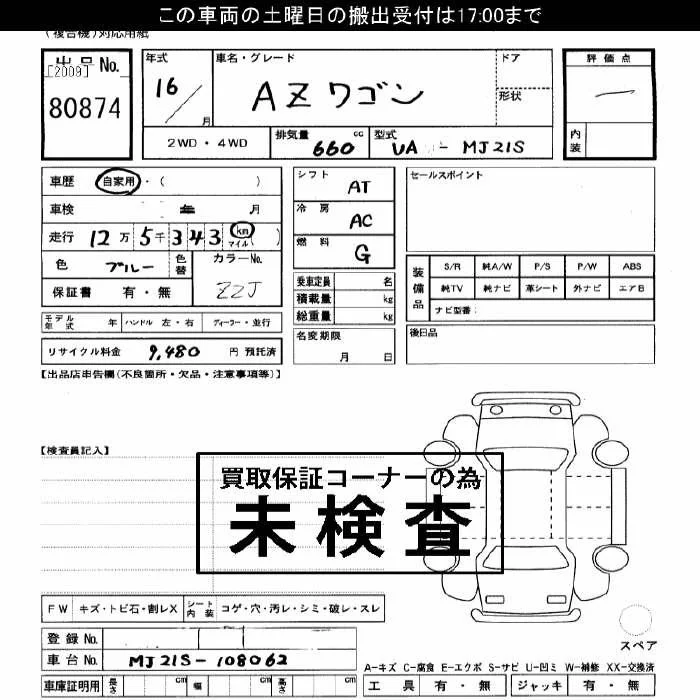 この車両の土曜日の搬出受付は17:00まで
(複合機)対応用紙
出品 No.
[2009]
80874
年式
16 / 月
車名・グレード
AZワゴン
ドア
形状
評価点
内装
2WD・4WD
排気量 660 cc
型式 UA - MJ21S
車歴 自家用・( )
車検 年 月
走行 12万5千343 km マイル ( )
色 ブルー 色替
カラーNo. ZZJ
保証書 有・無
シフト AT
冷房 AC
燃料 G
乗車定員 名
積載量 kg
総重量 kg
名変期限
月 日
セールスポイント
装備品
S/R 純A/W P/S P/W ABS
純TV 純ナビ 革シート 外ナビ エアB
ナビ型番:
後日品
モデル年式 年 ハンドル 左・右 ディーラー・並行
リサイクル料金 9,480 円 預託済
【出品店申告欄(不良箇所・欠品・注意事項等)】
【検査員記入】
買取保証コーナーの為
未検査
FW キズ・トビ石・割レX シート内装 コゲ・穴・汚レ・シミ・破レ・スレ
登録 No.
車台 No. MJ21S-108062
車庫証明用 長さ cm 幅 cm 高さ cm
スペア
A-キズ C-腐食 E-エクボ S-サビ U-凹ミ W-補修 XX-交換済
工具 有・無 ジャッキ 有・無